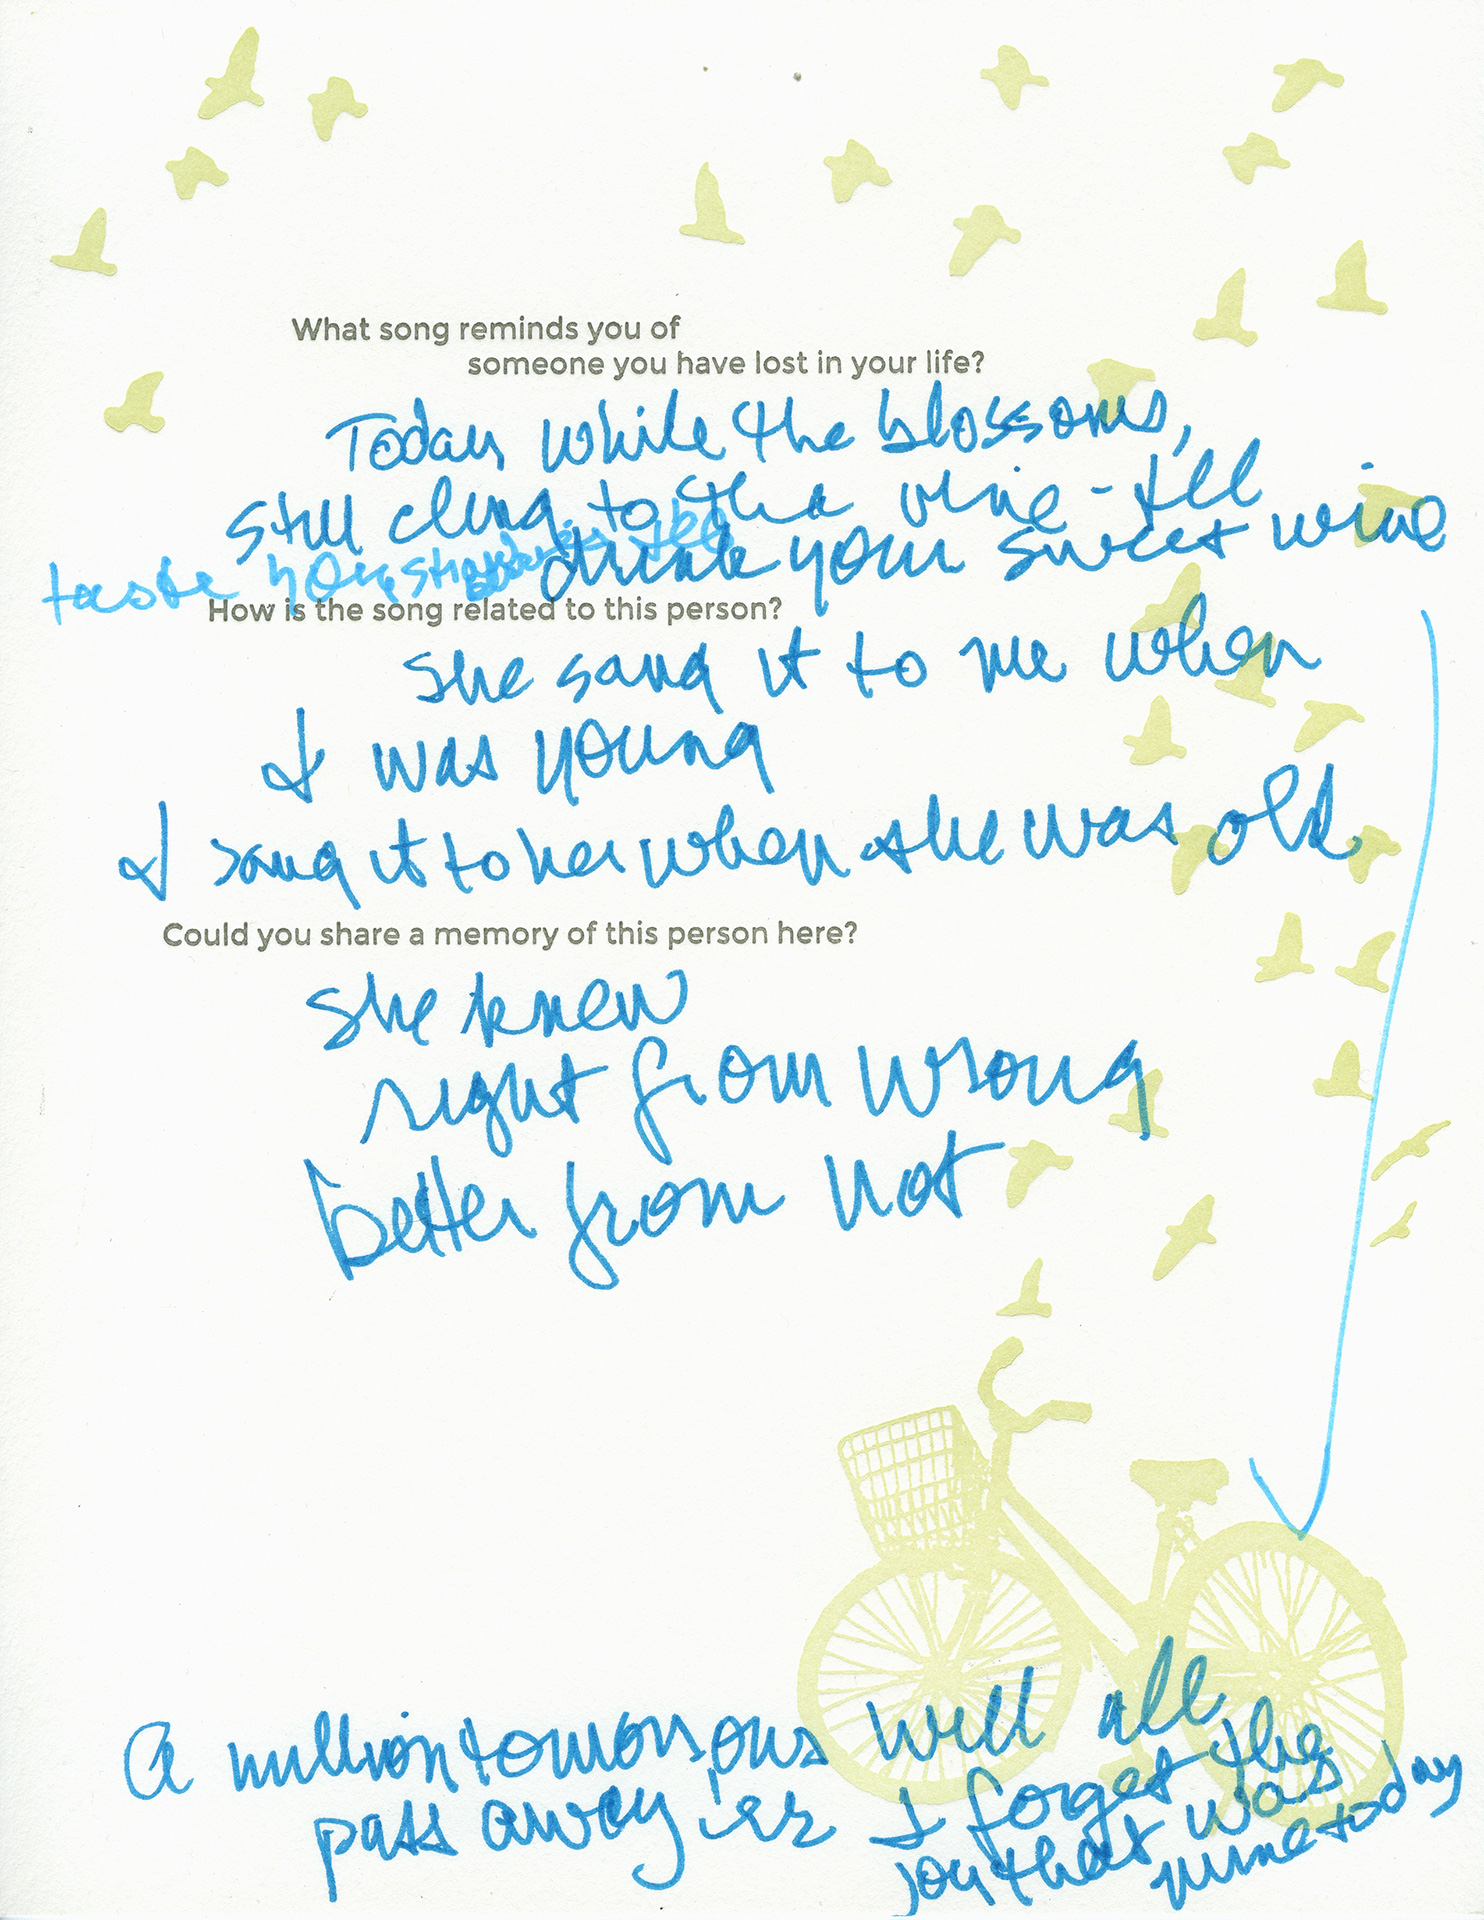 What song reminds you of
someone you have lost in your life?
Today while the blossoms,
still cling to tha vine - I'll
taste your strawberries I'll drink your sweet wine
How is the song related to this person?
she sang it to me when
I was young
I sang it to her when she was old.
Could you share a memory of this person here?
she knew
right from wrong
better from not
A million tomorrows will all
pass away 'er I forget the
joy that was
mine today